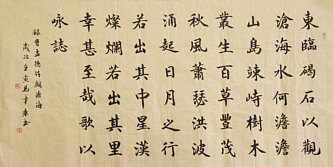 東臨碣石以觀
滄海水何澹澹
山島竦峙樹木
叢生百草豐茂
秋風蕭瑟洪波
涌起日月之行
若出其中星漢
燦爛若出其里
幸甚至哉歌以
詠誌
錄曹孟德詩觀滄海
歲次壬寅